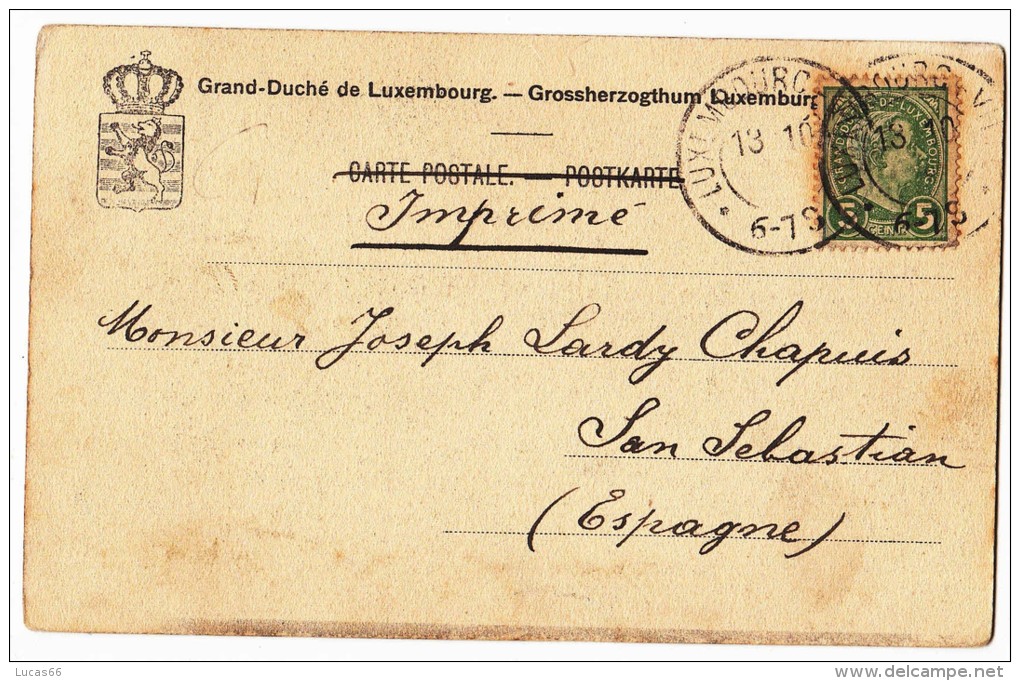 Grand-Duché de Luxembourg. — Grossherzogthum Luxemburg
CARTE POSTALE. — POSTKARTE
Imprimé
LUXEMBOURG
13 10
6-7 S
LUXEMBOURG-VILLE
13 10
6-7 S
GRAND DUCHÉ DE LUXEMBOURG
5 5
Monsieur Joseph Lardy Chapuis
San Sebastian
(Espagne)
Lucas66
www.delcampe.net